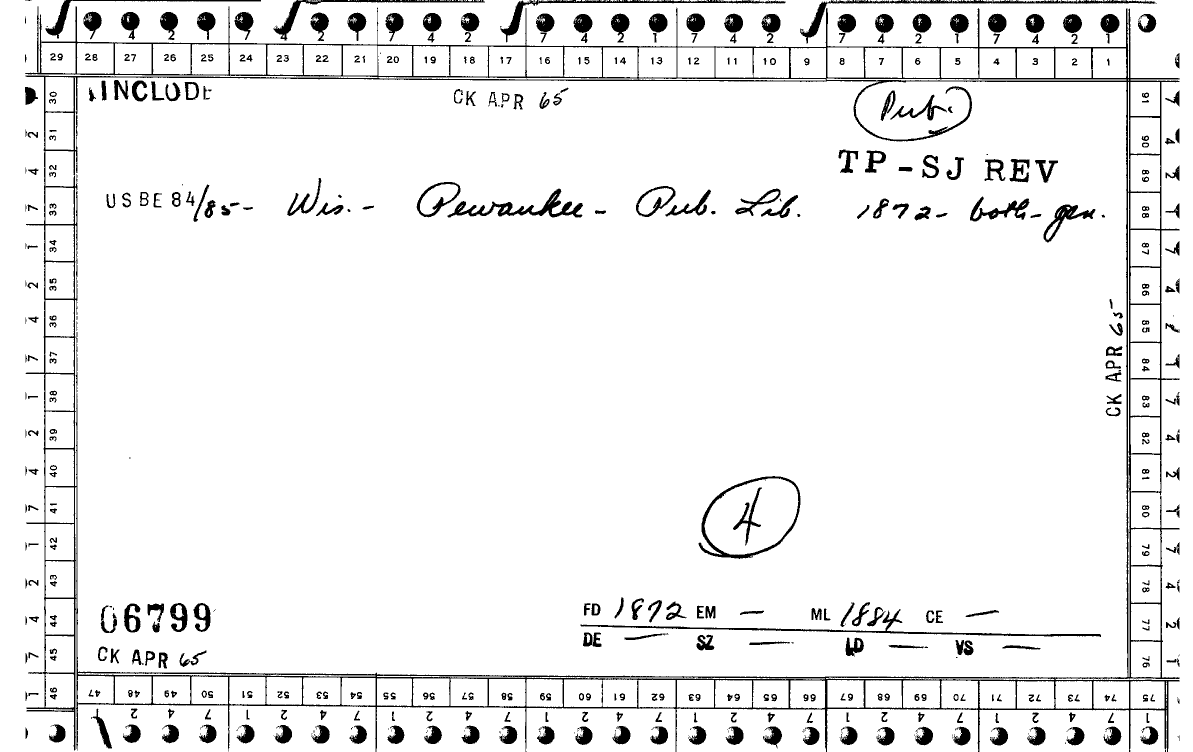 7 4 2 1 7 4 2 1 7 4 2 1 7 4 2 1 7 4 2 1 7 4 2 1 7 4 2 1
29 28 27 26 25 24 23 22 21 20 19 18 17 16 15 14 13 12 11 10 9 8 7 6 5 4 3 2 1
INCLUDE
CK APR 65
Pub.
TP-SJ REV
USBE 84/85- Wis.- Pewaukee- Pub. Lib. 1872- both- gen.
CK APR 65
4
06799
FD 1872 EM — ML 1884 CE —
DE — SZ — LD — VS —
CK APR 65
30 31 32 33 34 35 36 37 38 39 40 41 42 43 44 45 46
91 90 89 88 87 86 85 84 83 82 81 80 79 78 77 76 75
47 48 49 50 51 52 53 54 55 56 57 58 59 60 61 62 63 64 65 66 67 68 69 70 71 72 73 74
1 2 4 7 1 2 4 7 1 2 4 7 1 2 4 7 1 2 4 7 1 2 4 7 1 2 4 7